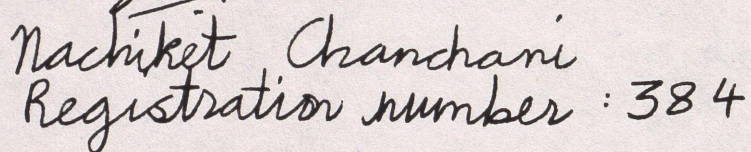 Nachiket Chanchani
Registration number : 384